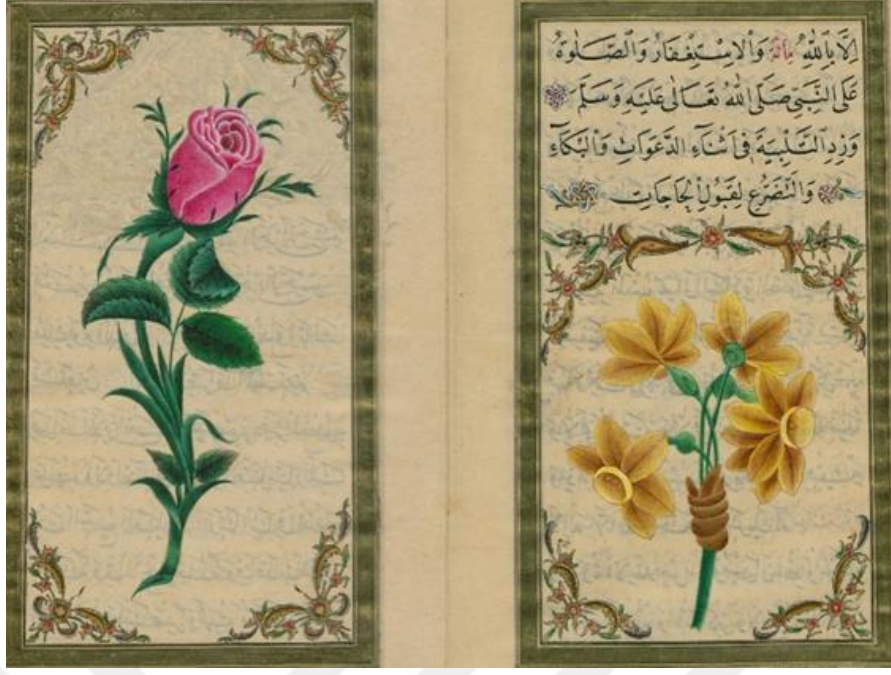 اِلَّا بِاللّٰهِ مِائَة وَالْاِسْتِغْفَارُ وَالصَّلٰوةُ
عَلَى النَّبِيِّ صَلَّى اللّٰهُ تَعَالٰى عَلَيْهِ وَسَلَّمَ
وَرْدِ التَّلْبِيَةَ فِى اَثْنَاءِ الدَّعَوَاتِ وَالْبُكَاءِ
وَالتَّضَرُّعِ لِقَبُولِ الْحَاجَاتِ